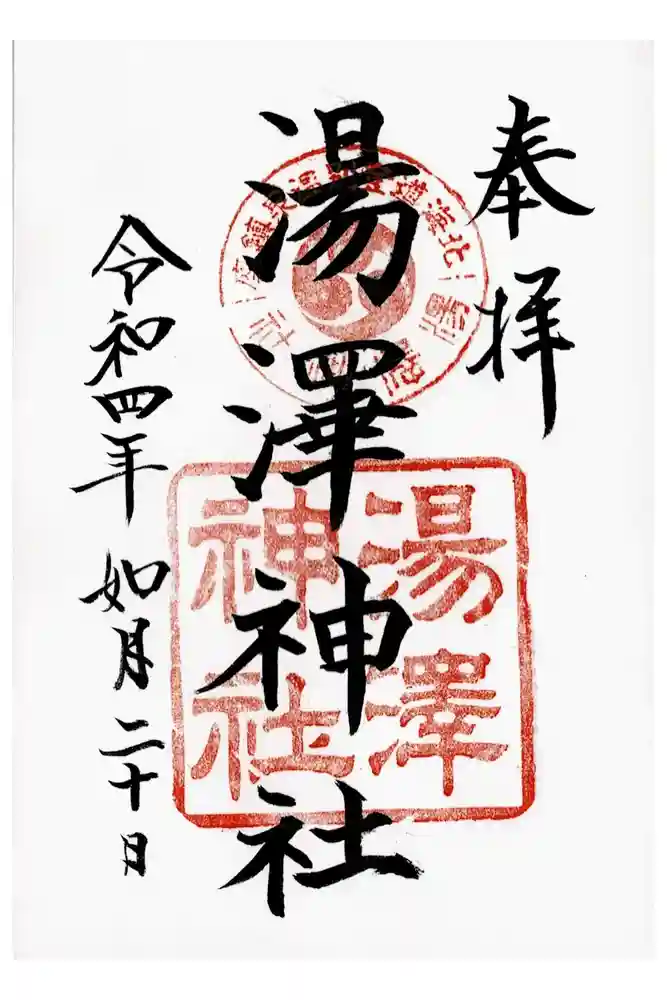 奉拝
湯澤神社
令和四年 如月二十日
湯澤
神社